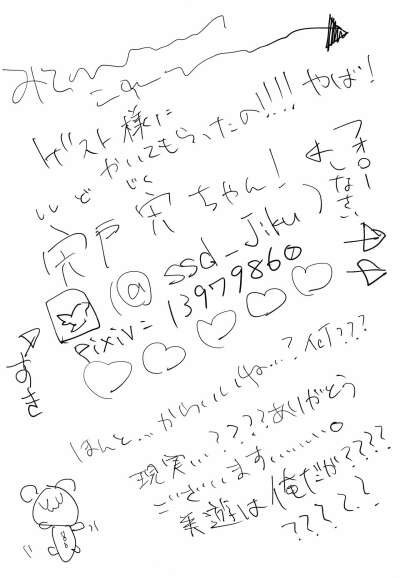 みて
この
ゲスト様に
かいてもらったの!!!! やば!
ししど じく
宍戸 宍ちゃん!
(@ssd_Jiku)
pixiv= 13979860
フォローしなさい
ほんと…かわいいね…? 何???
現実…????ありがとう
ございます………。
美遊は俺だが????
?????